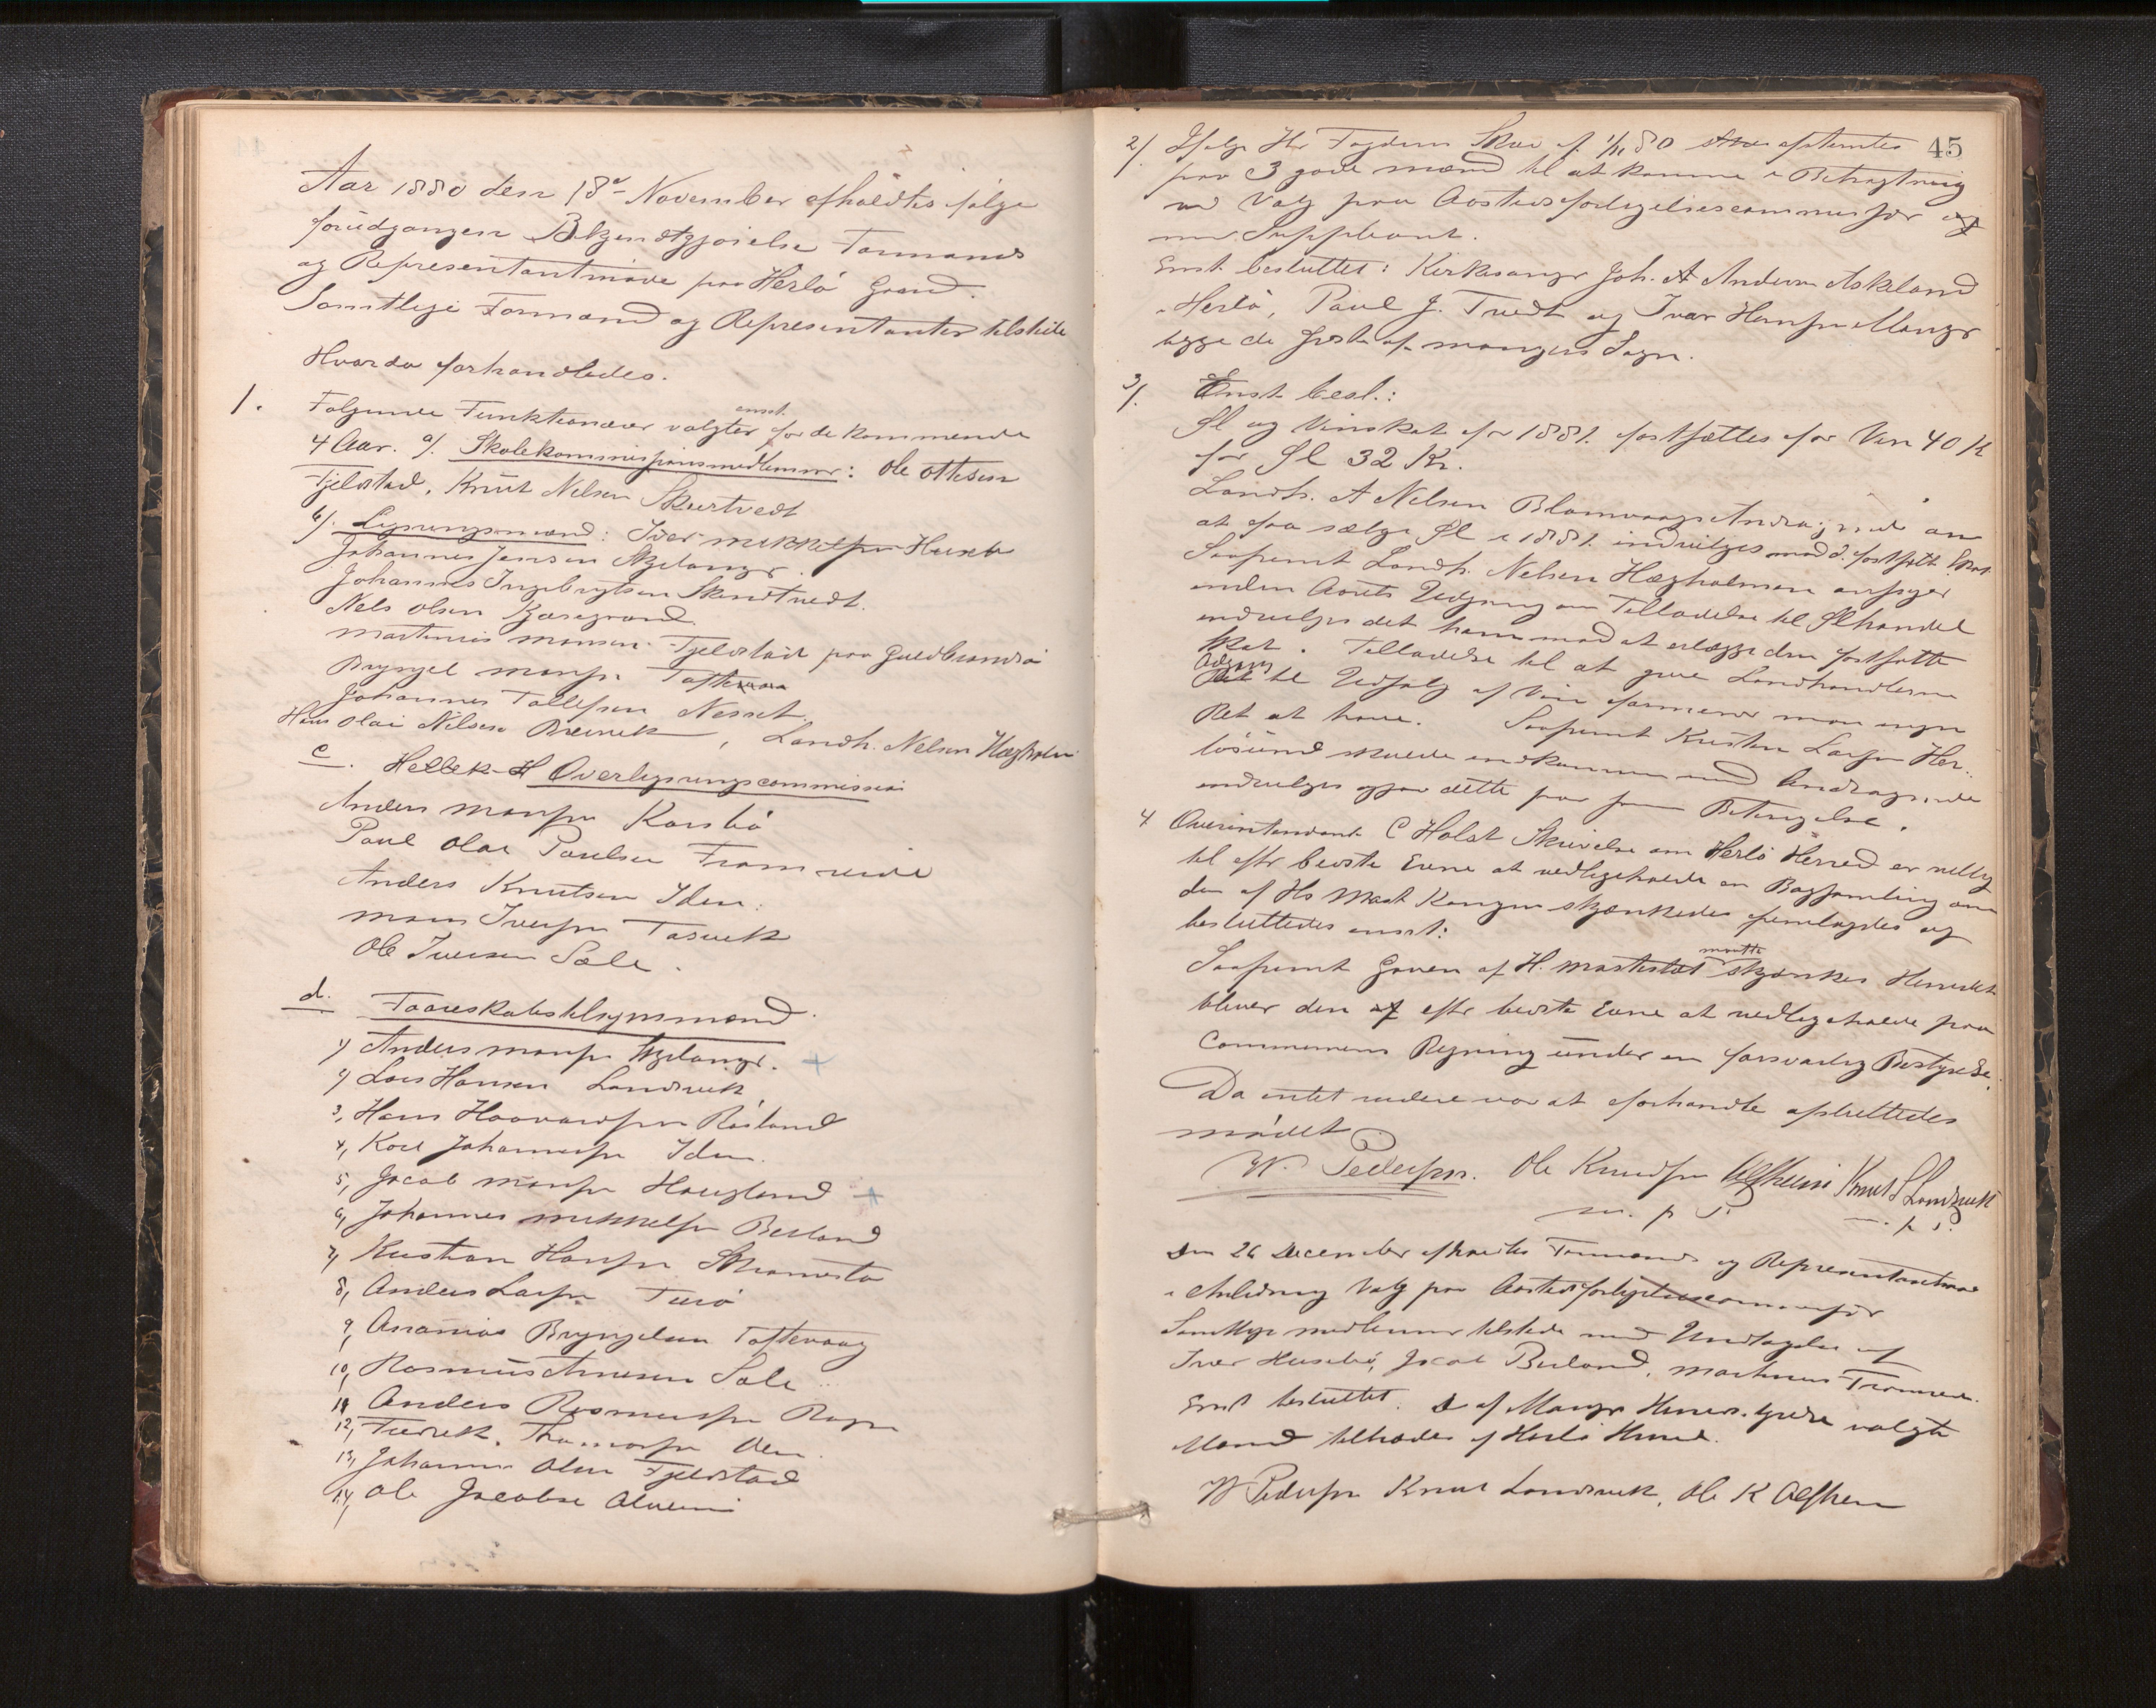 Aar 1880 den 18de November afholdtes følge
forudgangen Bekjendtgjørelse Formands
og Representantmøde paa Herlø Gaard.
Samtlige Formænd og Representanter tilstede
Hvorda forhandledes.
1. Følgende Funktionærer valgtes enst. for de kommende
4 Aar. a). Skolekommissionsmedlemmer: Ole Ottesen
Fjeldstad, Knut Nelsen Skurtvedt
b). Ligningsmænd: Iver Mikkelsen Husebø
Johannes Jensen Skjelanger.
Johannes Ingebrigtsen Skurtvedt.
Nels Olsen
Martinus Monsen Fjeldstad paa
Bryngel Monsen Tofte
Johannes Tollefsen Nesset.
Hans Olai Nilsen Breivik, Landh. Nelsen Hægholm
c. Overligningscommission
Anders Monsen Karsbø
Paul Olai Paulsen Fromreide
Anders Knutsen Iden.
Mons Iversen Tosvik
Ole Iversen Sæle.
d. Faareskabstilsynsmænd.
1) Anders Monsen Skjelanger.
2) Lars Hansen Landsvik
3, Hans Haavardsen Røsland
4, Johannessen Iden.
5, Jacob Monsen Haugland
6, Johannes Mikkelsen Berland
7, Kristian Hansen
8, Anders Larsen
9, Ananias Bryngelsen Toftevaag
10, Rasmus Arnesen Sæle
11 Anders Rasmussen
12, Fredrik Thomassen
13, Johannes Olsen Fjeldstad
14, Ole Jacobsen Alveim
45
2). Ifølge Hr Fogdens Skr. af 1/11 80 afstemtes
paa 3 gode mænd til at komme i Betragtning
ved Valg paa Aastedsforligelsescommissær og
med Suppleant.
Enst. besluttet: Kirkesanger Joh. A Andersen Askeland
Herlø, Paul J. Tvedt og Ivar Hansen Manger
begge de sidste af Mangers Sogn.
3). Enst. besl.:
Øl og Vinskat for 1881. fastsættes for Vin 40 K
for Øl 32 Kr.
Landh. A Nelsen Blomvaags Andragende om
at faa sælge Øl i 1881. indvilges mod d. fastsatte Skat.
Saafremt Landh. Nelsen Hægholmen ansøger
inden Aarets Udgang om Tilladelse til Ølhandel
indvilges det ham mod at erlægge den fastsatte
Skat. Tilladelse til at give Landhandlerne
Adgang til Udsalg af Vin formener man ingen
Ret at have. Saafremt Kristen Larsen Her-
løsund skulde indkomme med Andragende
indvilges ogsaa dette paa samme Betingelse.
4 Overintendant C Holst Skrivelse om Herlø Herred er villig
til efter bedste Evne at vedligeholde en Bogsamling om
den af Hs Majt Kongen skjænkedes fremlagdes og
besluttedes enst:
Saafremt Gaven af H. Majestæt maatte skjænkes Herredet
bliver den efter bedste Evne at vedligeholde paa
Communens Regning under en forsvarlig Bestyrelse.
Da intet videre var at forhandle afsluttedes
mødet
W. Pedersen. Ole Knudsen Alfheim Knut S Landsvik
m. p. P. m. p. P.
Den 26 December afholdtes Formands og Representantmøde
i Anledning Valg paa Aastedsforligelsescommissær
Samtlige medlemmer tilstede med Undtagelse af
Iver Husebø, Jacob Berland, Martinus Fromreide.
Enst besluttet. De af Manger Herreds valgte
Mænd tiltrædes af Herlø Herred.
W Pedersen Knut Landsvik, Ole K Alfheim